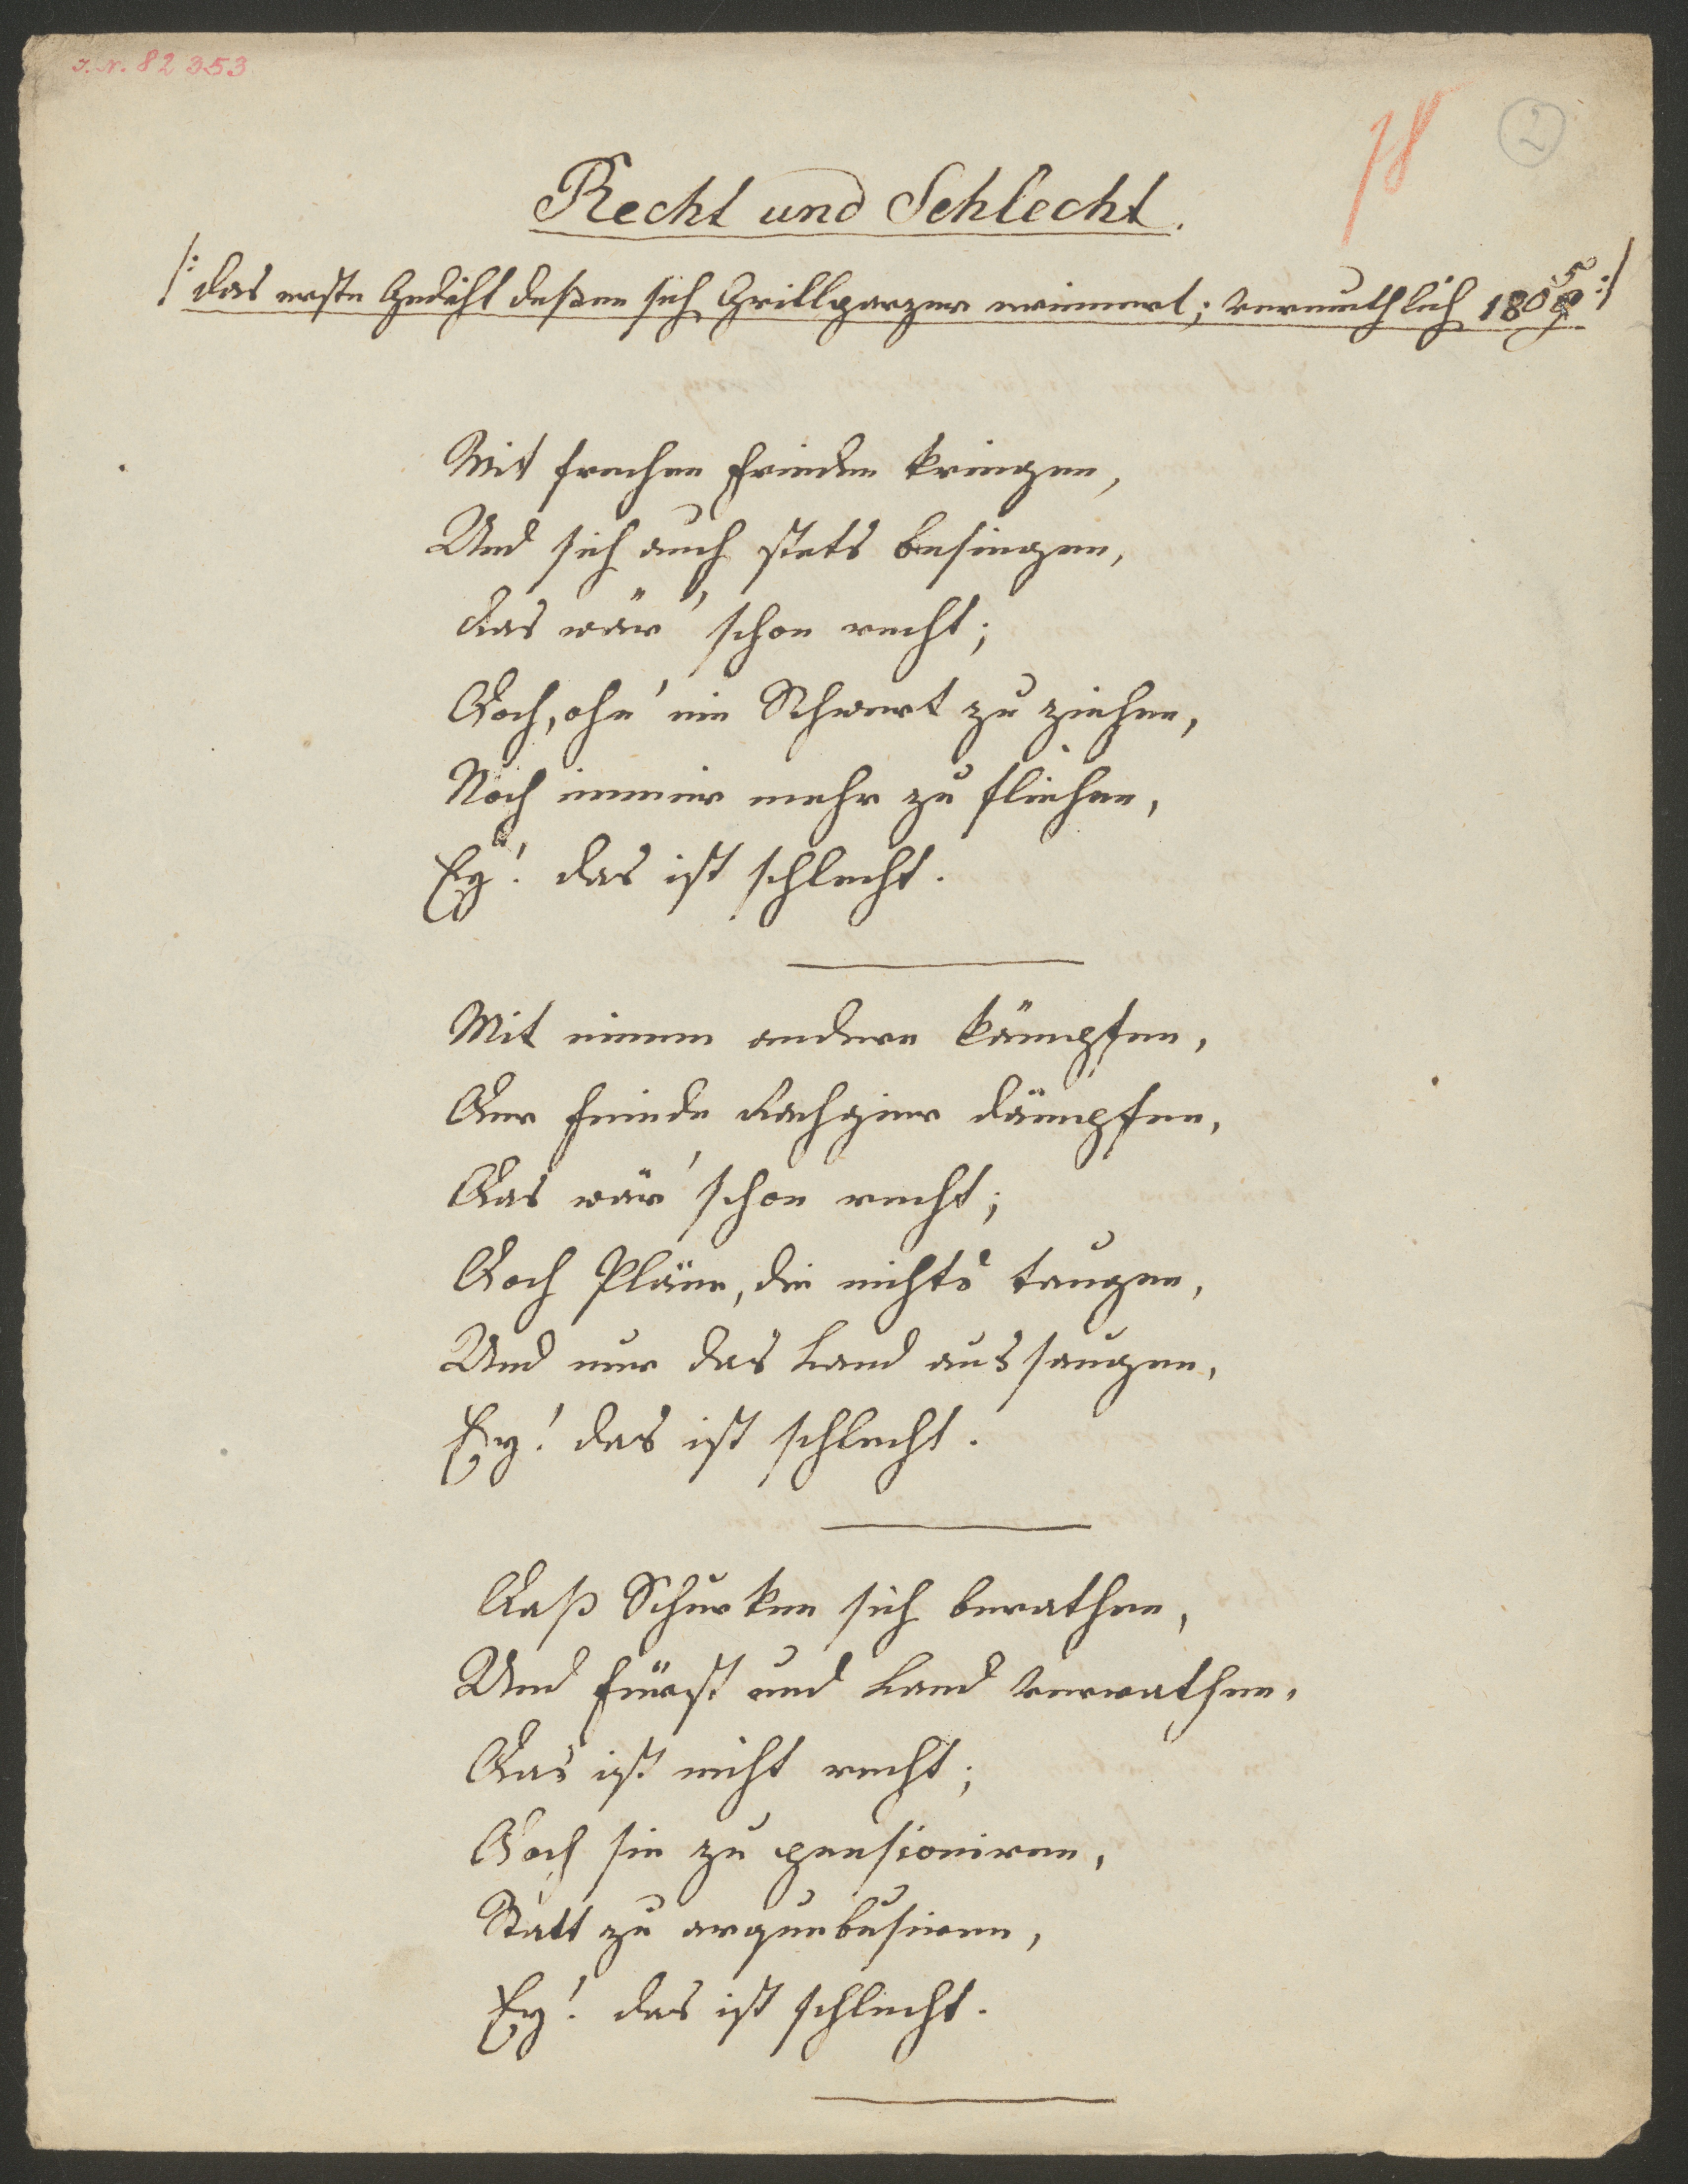 J.N. 82353
78
2
Recht und Schlecht.
/: das erste Gedicht deßen sich Grillparzer erinnert; vermuthlich 1805 :/
Mit frechen Feinden kriegen,
Und sich auch stets besiegen,
das wär' schon recht;
Doch, ohn' ein Schwert zu ziehen,
Noch immer mehr zu fliehen,
Ey! das ist schlecht.
Mit einem andern kämpfen,
Der Feinde Rachgier dämpfen,
Das wär' schon recht;
Doch Pläne, die nichts taugen,
Und nur das Land aussaugen,
Ey! das ist schlecht.
Daß Schurken sich berathen,
Und Fürst und Land verrathen,
Das ist nicht recht;
Doch sie zu pensioniren,
Statt zu arquebusiren,
Ey! das ist schlecht.